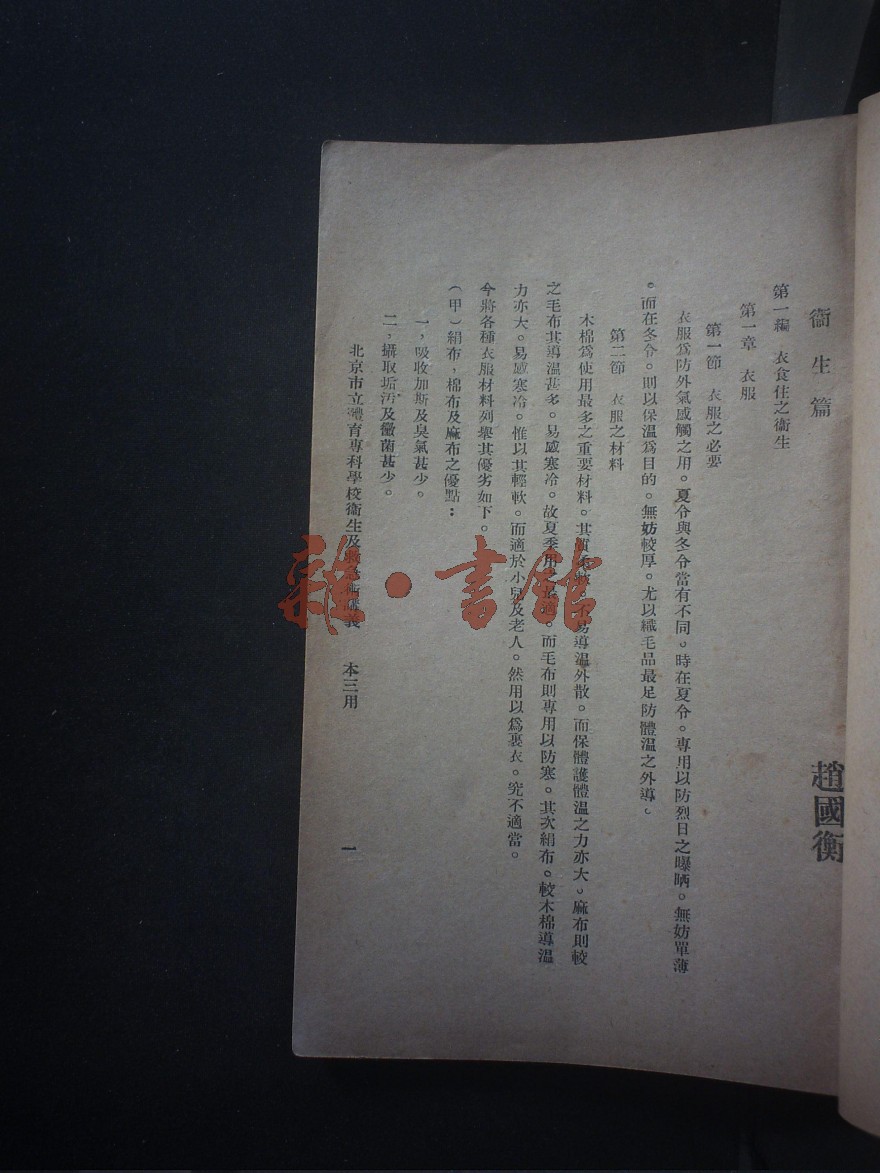 衞生篇　趙國衡
第一編　衣食住之衞生
第一章　衣服
第一節　衣服之必要
衣服爲防外氣感觸之用。夏令與冬令當有不同。時在夏令。專用以防烈日之曝晒。無妨單薄
。而在冬令。則以保温爲目的。無妨較厚。尤以織毛品最足防體温之外導。
第二節　衣服之材料
木棉爲使用最多之重要材料。其質柔　不易導温外散。而保體護體温之力亦大。麻布則較
之毛布其導温甚多。易感寒冷。故夏季用　最　。而毛布則專用以防寒。其次絹布。較木棉導温
力亦大。易感寒冷。惟以其輕軟。而適於小兒及老人。然用以爲裏衣。究不適當。
今將各種衣服材料列舉其優劣如下。
（甲）絹布，棉布及麻布之優點：
一，吸收加斯及臭氣甚少。
二，攝取垢汚及黴菌甚少。
北京市立體育專科學校衞生及　　術講義　本三用
一
雜·書館